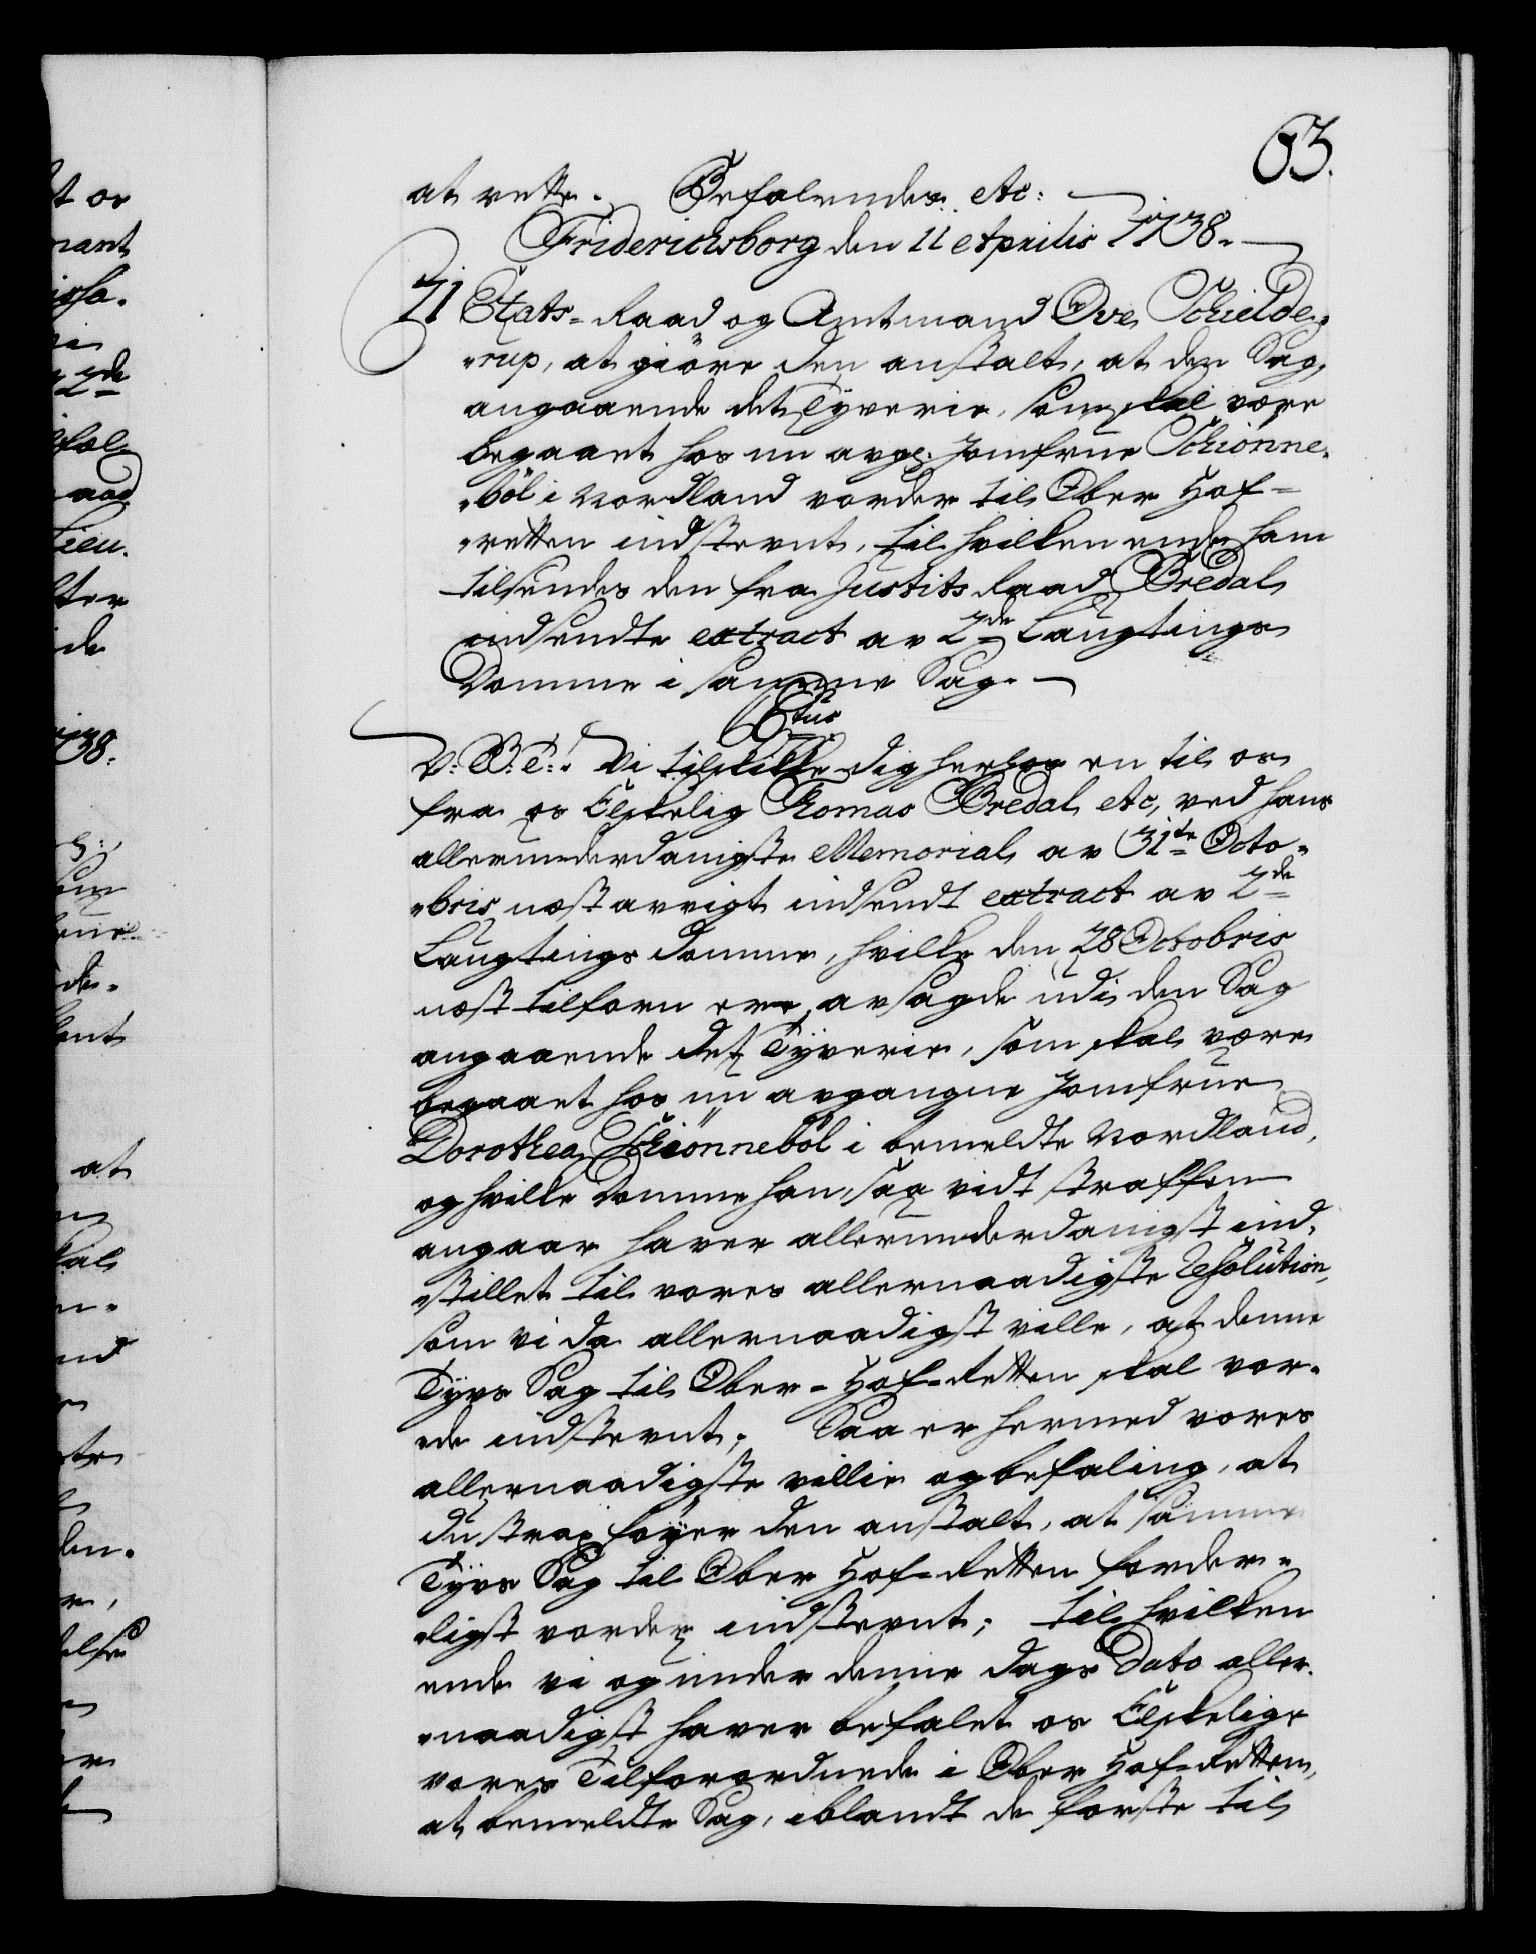 63.
at rette. Befalendes etc:
Friderichsborg den 11 Aprilis 1738.
71 Etats-Raad og Amtmand Ove Schielde-
"rup, at giöre den anstalt, at den Sag,
angaaende det Tyverie, som skal være
begaaet hos nu avge. Jomfrue Schiönne-
"böl i Nordland vorder til Ober Hof-
"retten indstevnt, til hvilken ende ham
tilsendes den fra Justits Raad Bredal
indsendte extract av 2de Laugtings
Domme i samme Sag.
Christianus 6tus
V: B: T:. Vi tilskikke dig herhos en til os
fra os Elskelig Thomas Bredal etc, ved hans
allerunderdanigste Memorial av 31te Octo-
"bris næstavvigt indsendt extract av 2de
Laugtings Domme, hvilke den 28 Octobris
næst tilforn ere avsagde udi den Sag
angaaende det Tyverie, som skal være
begaaet hos nu avgangne Jomfrue
Dorothea Schiönneböl i bemeldte Nordland,
og hvilke Domme han, saa vidt straffen
angaar haver allerunderdanigst ind-
"stillet til vores allernaadigste Resolution,
som vi da allernaadigst ville, at denne
Tyvs Sag til Ober-Hof-Retten skal vor-
"de indstevnt; Saa er hermed vores
allernaadigste villie og befaling, at
du strax föyer den anstalt, at samme
Tyvs Sag til Ober Hof-Retten forder-
"ligst vorder indstevnt; til hvilken
ende vi og under denne dags Dato aller-
"naadigst haver befalet os Elskelige
vores Tilforordnede i Ober Hof-Retten,
at bemeldte Sag, iblandt de förste til